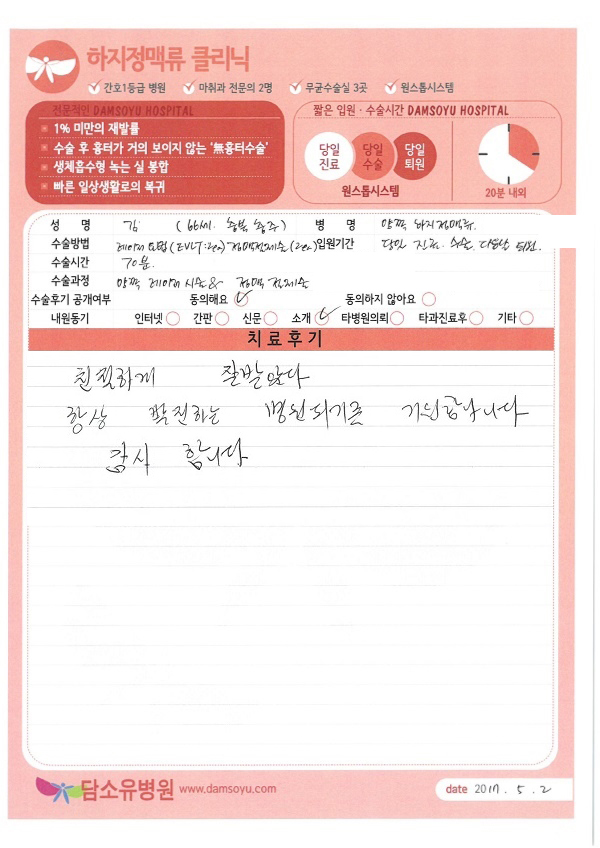 하지정맥류 클리닉
간호1등급 병원 마취과 전문의 2명 무균수술실 3곳 원스톱시스템
전문적인 DAMSOYU HOSPITAL
1% 미만의 재발률
수술 후 흉터가 거의 보이지 않는 '無흉터수술'
생체흡수형 녹는 실 봉합
빠른 일상생활로의 복귀
짧은 입원·수술시간 DAMSOYU HOSPITAL
당일 진료 당일 수술 당일 퇴원
원스톱시스템
20분 내외
성 명 김 (66세. 충북 충주) 병 명 양쪽 하지정맥류.
수술방법 레이저요법(EVLT:2ea) 정맥전제술(2ea) 입원기간 당일 진료. 수술. 다음날 퇴원.
수술시간 70분.
수술과정 양쪽 레이저 시술& 정맥 전제술
수술후기 공개여부 동의해요 동의하지 않아요
내원동기 인터넷 간판 신문 소개 타병원의뢰 타과진료후 기타
치료후기
친절하게 잘받았다
항상 발전하는 병원되기를 기원합니다
감사 합니다
담소유병원 www.damsoyu.com
date 2017. 5. 2